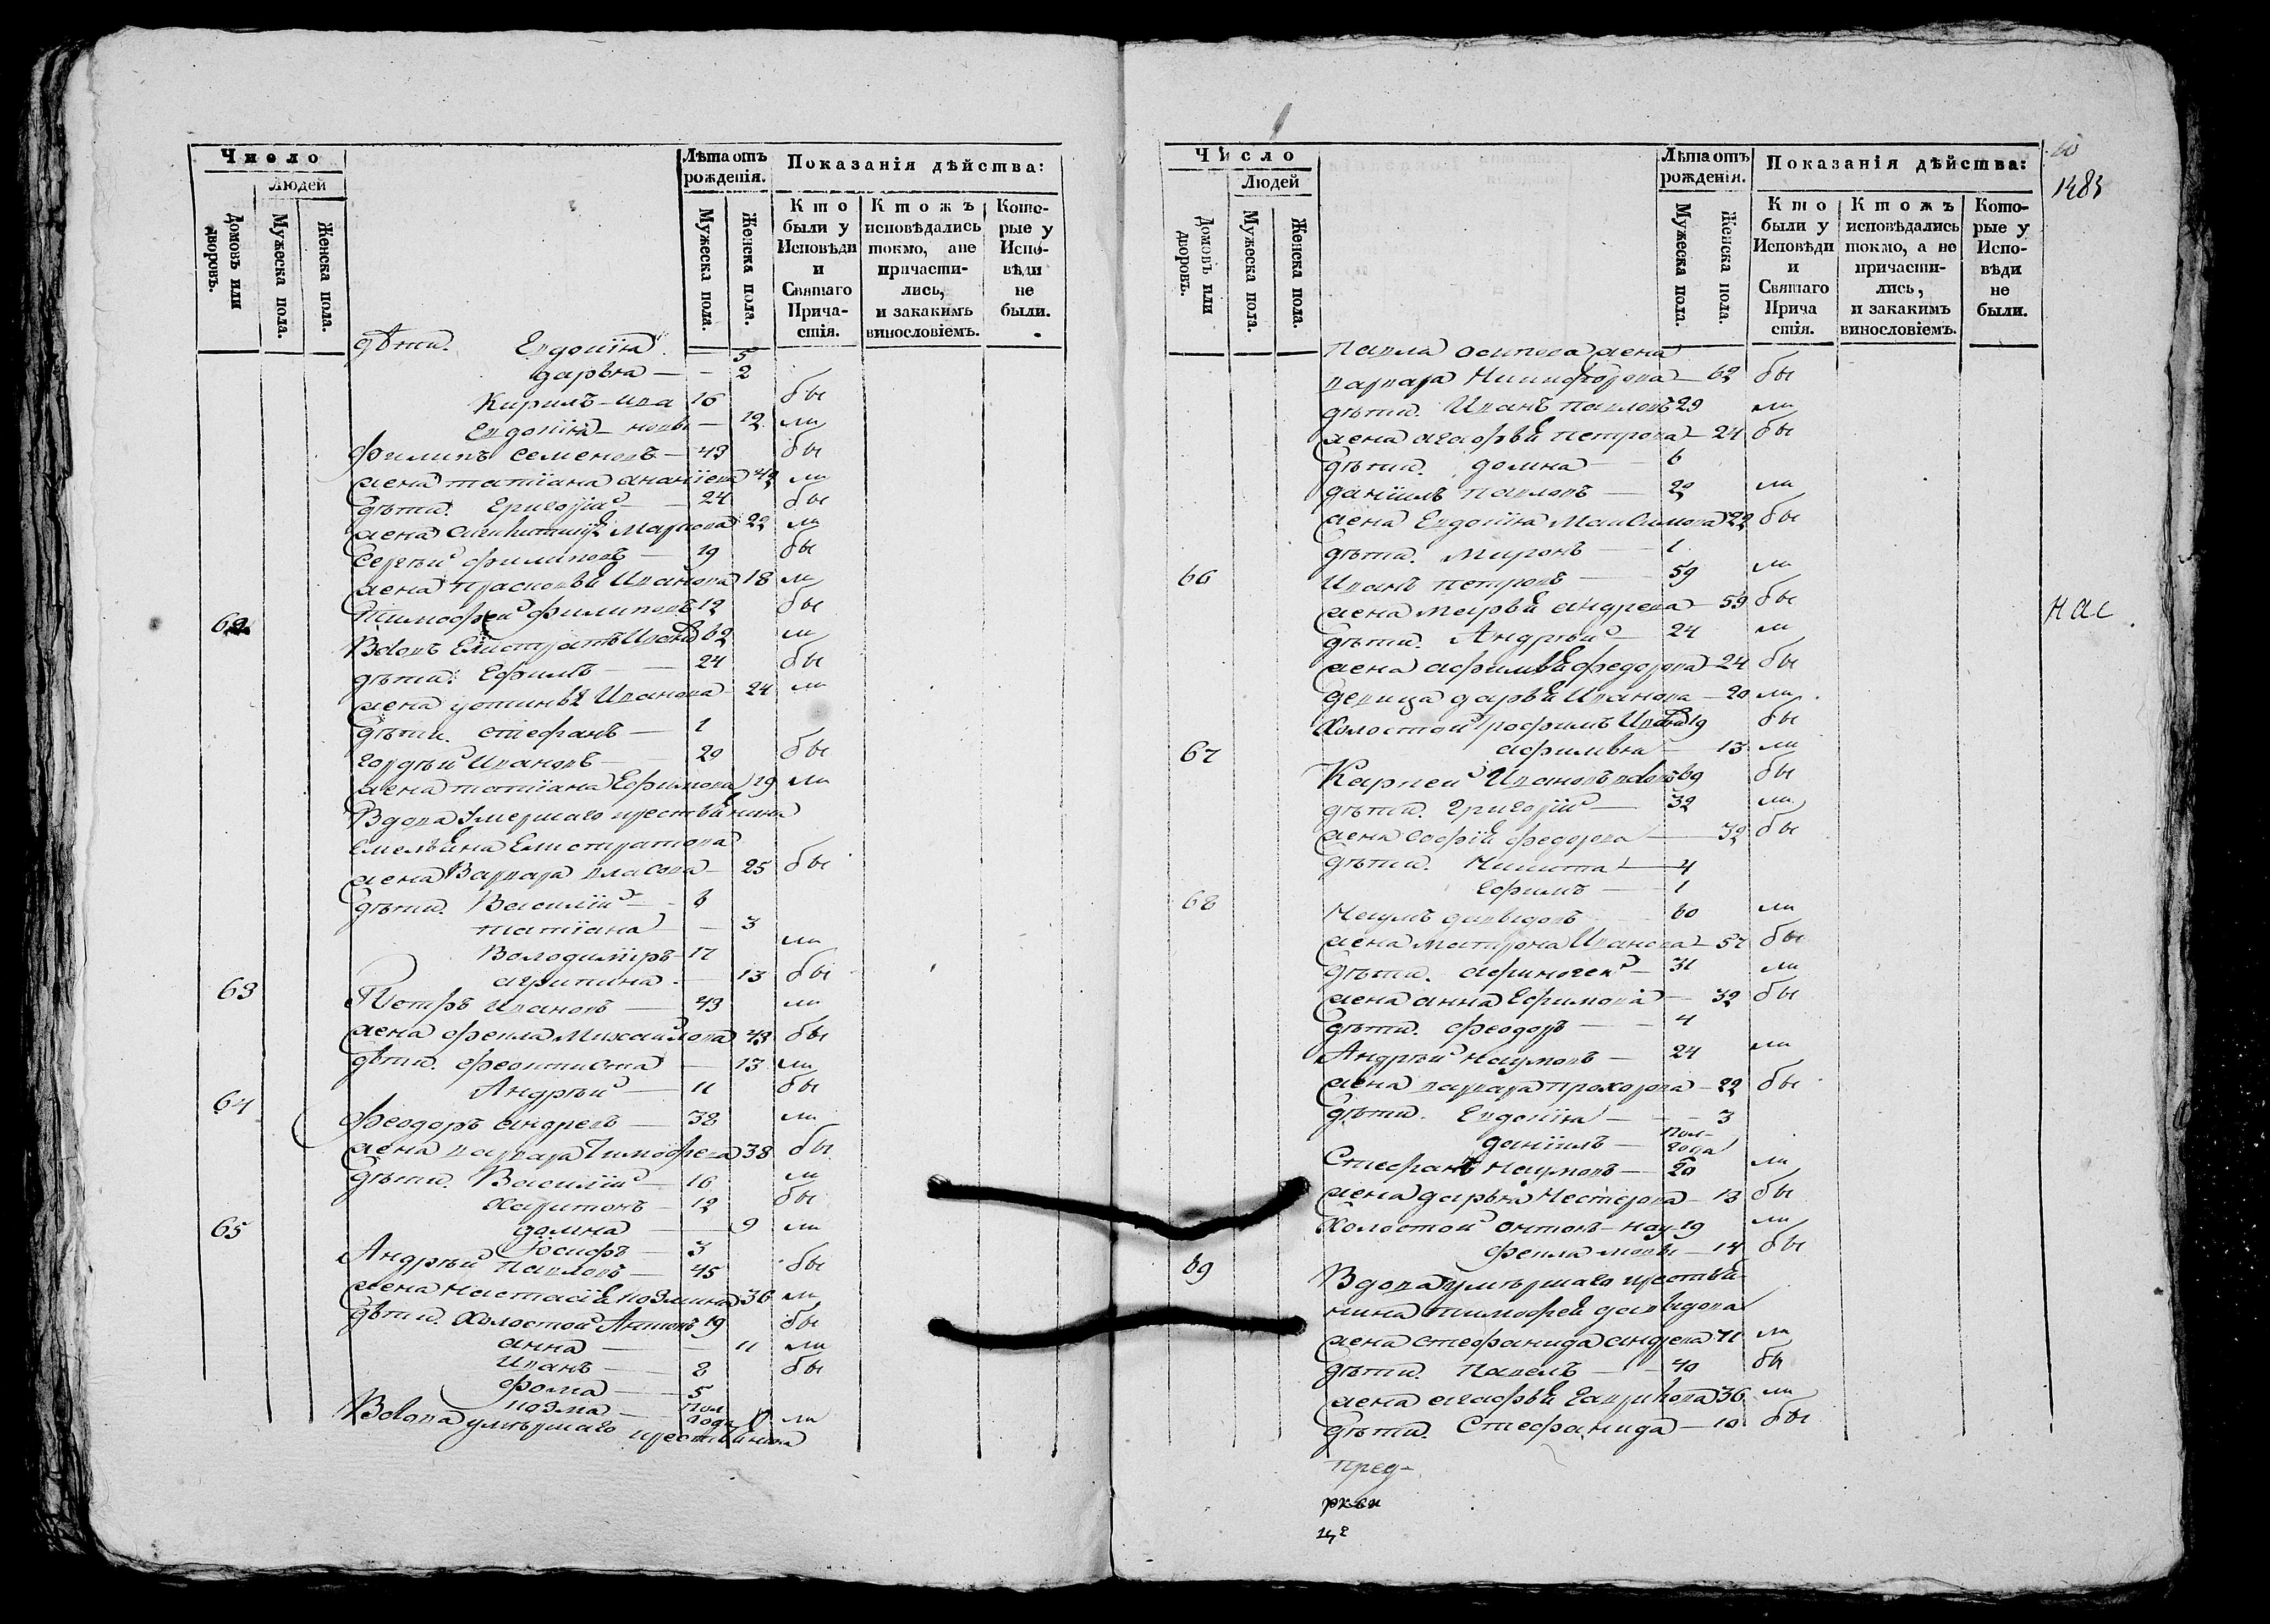 Число
Людей
Домовъ или дворовъ.
Мужеска пола.
Женска пола.
Лѣта отъ рожденія.
Мужеска пола.
Женска пола.
Показанія дѣйства:
Кто были у Исповѣди и Святаго Причастія.
Ктожъ исповѣдались токмо, а не причастились, и закакимъ винословіемъ.
Которые у Исповѣди не были.
дѣти. Евдокіѧ — 5
дарьѧ — 2
Кирилъ — ива 16 бы
Евдокіѧ — новы — 12 ли
филипъ семеновъ — 43 бы
жена татіана ананіева 42 ли
дѣти. Григорій 24 бы
жена Маркова 22 ли
Сергѣй филиповъ — 19 бы
жена Прасковьѧ Иванова 18 ли
Тимофей филиповъ 12 бы
62 Вдовъ Елистратъ Ивановъ 62 ли
дѣти. Ефимъ — 24 бы
жена устиньѧ Иванова 24 ли
дѣти. стефанъ — 1
гордѣй Ивановъ — 29 бы
жена татіана Ефимова 19 ли
Вдова умершаго крестьѧнина
емельѧна Елистратова
жена Варвара власова — 25 бы
дѣти. Василій — 6
татіана — 3
Володимиръ — 17 ли
агрипина — 13 бы
63 Петръ Ивановъ — 43 ли
жена фекла Михайлова 43 бы
дѣти. феоктиста — 13 ли
Андрѣй — 11 бы
64 феодоръ андреевъ — 38 ли
жена варвара Тимофеева 38 бы
дѣти. Василій — 16 ли
харитонъ — 12 бы
домна — 9 ли
Іосифъ — 3
65 Андрѣй Павловъ — 45 бы
жена Настасіѧ козмина 36 ли
дѣти. холостой Антонъ 19 бы
анна — 11 ли
Иванъ — 8 бы
фома — 5
козма — пол года
Вдова умѣршаго крестьѧнина ли
Число
Людей
Домовъ или дворовъ.
Мужеска пола.
Женска пола.
Лѣта отъ рожденія.
Мужеска пола.
Женска пола.
Показанія дѣйства:
Кто были у Исповѣди и Святаго Прича стія.
Ктожъ исповѣдались токмо, а не причастились, и закакимъ винословіемъ.
Которые у Исповѣди не были.
Павла осипова жена
варвара Никифорова — 62 бы
дѣти. Иванъ Павловъ 29 ли
жена агафьѧ петрова — 24 бы
дѣти. домна — 6
даніилъ Павловъ — 22 ли
жена Евдокіѧ Максимова 22 бы
дѣти. Миронъ — 1
66 Иванъ петровъ — 59 ли
жена марфа андреева — 59 бы
дѣти. Андрѣй — 24 ли
жена афимьѧ федорова — 24 бы
девица дарьѧ Иванова — 20 ли
холостой Трофимъ Ивановъ 19 бы
афимьѧ — 13 ли
67 Карпей Ивановъ вдовъ 69 бы
дѣти. григорій — 32 ли
жена софіѧ федорова — 32 бы
дѣти. Никита — 4
Ефимъ — 1
68 Наумъ давыдовъ — 60 ли
жена матрона Иванова — 57 бы
дѣти. афиногей — 31 ли
жена анна Ефимова — 32 бы
дѣти. феодоръ — 4
Андрѣй наумовъ — 24 ли
жена варвара прохорова — 22 бы
дѣти. Евдокіѧ — 3
даніилъ — Пол года
Стефанъ наумовъ — 20 ли
жена дарьѧ Нестерова — бы
холостой антонъ — нау 19 ли
фекла мовы — 14 бы
69 Вдова умѣршаго крестьѧ-
нина тимофеѧ давыдова
жена стефанида андреева 71 ли
дѣти. Павелъ — 40 бы
жена агафьѧ 36 ли
дѣти. Стефанида — 10 бы
нас
пред-